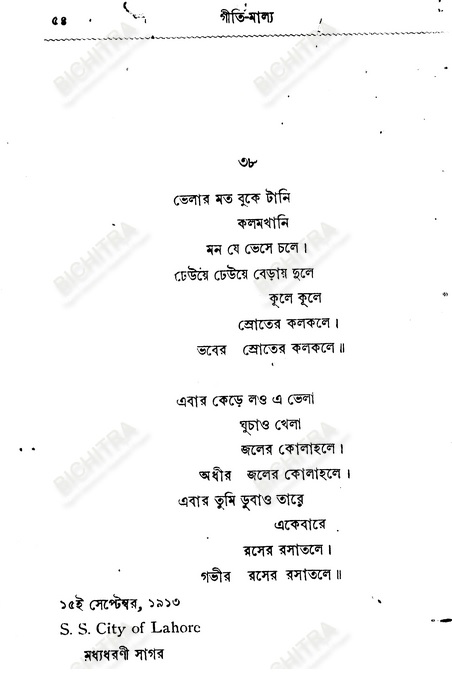 ৫৪ গীতি-মাল্য
৩৮
ভেলার মত বুকে টানি
কলমখানি
মন যে ভেসে চলে।
ঢেউয়ে ঢেউয়ে বেড়ায় দুলে
কূলে কূলে
স্রোতের কলকলে।
ভবের স্রোতের কলকলে॥
এবার কেড়ে লও এ ভেলা
ঘুচাও খেলা
জলের কোলাহলে।
অধীর জলের কোলাহলে।
এবার তুমি ডুবাও তারে
একেবারে
রসের রসাতলে।
গভীর রসের রসাতলে॥
১৫ই সেপ্টেম্বর, ১৯১৩
S. S. City of Lahore
মধ্যধরণী সাগর
BICHITRA
BICHITRA
BICHITRA
BICHITRA
BICHITRA
BICHITRA
BICHITRA
BICHITRA